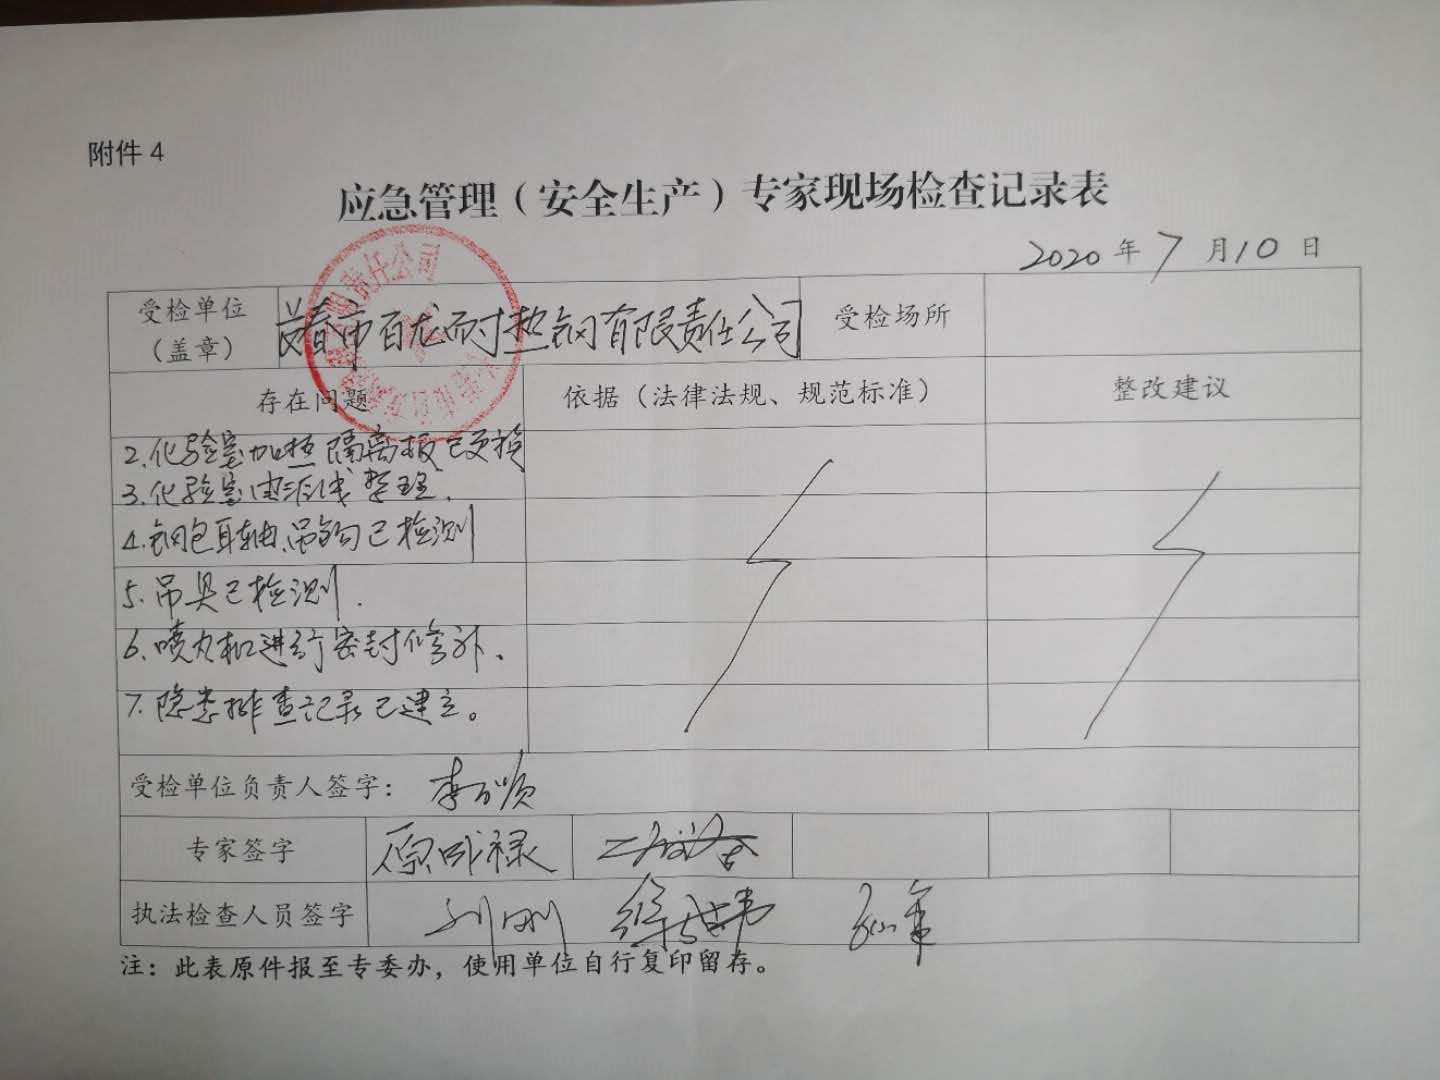 附件 4
应急管理（安全生产）专家现场检查记录表
2020 年 7 月 10 日
受检单位
（盖章）
春市百龙耐热钢有限责任公司
受检场所
存在问题
依据（法律法规、规范标准）
整改建议
2.化验室加热隔离板已更换
3.化验室电源线整理.
4.钢包耳轴、吊钩已检测
5.吊具已检测.
6.喷丸机进行密封修补、
7.隐患排查记录已建立。
受检单位负责人签字：
专家签字
执法检查人员签字
刘刚
注：此表原件报至专委办，使用单位自行复印留存。